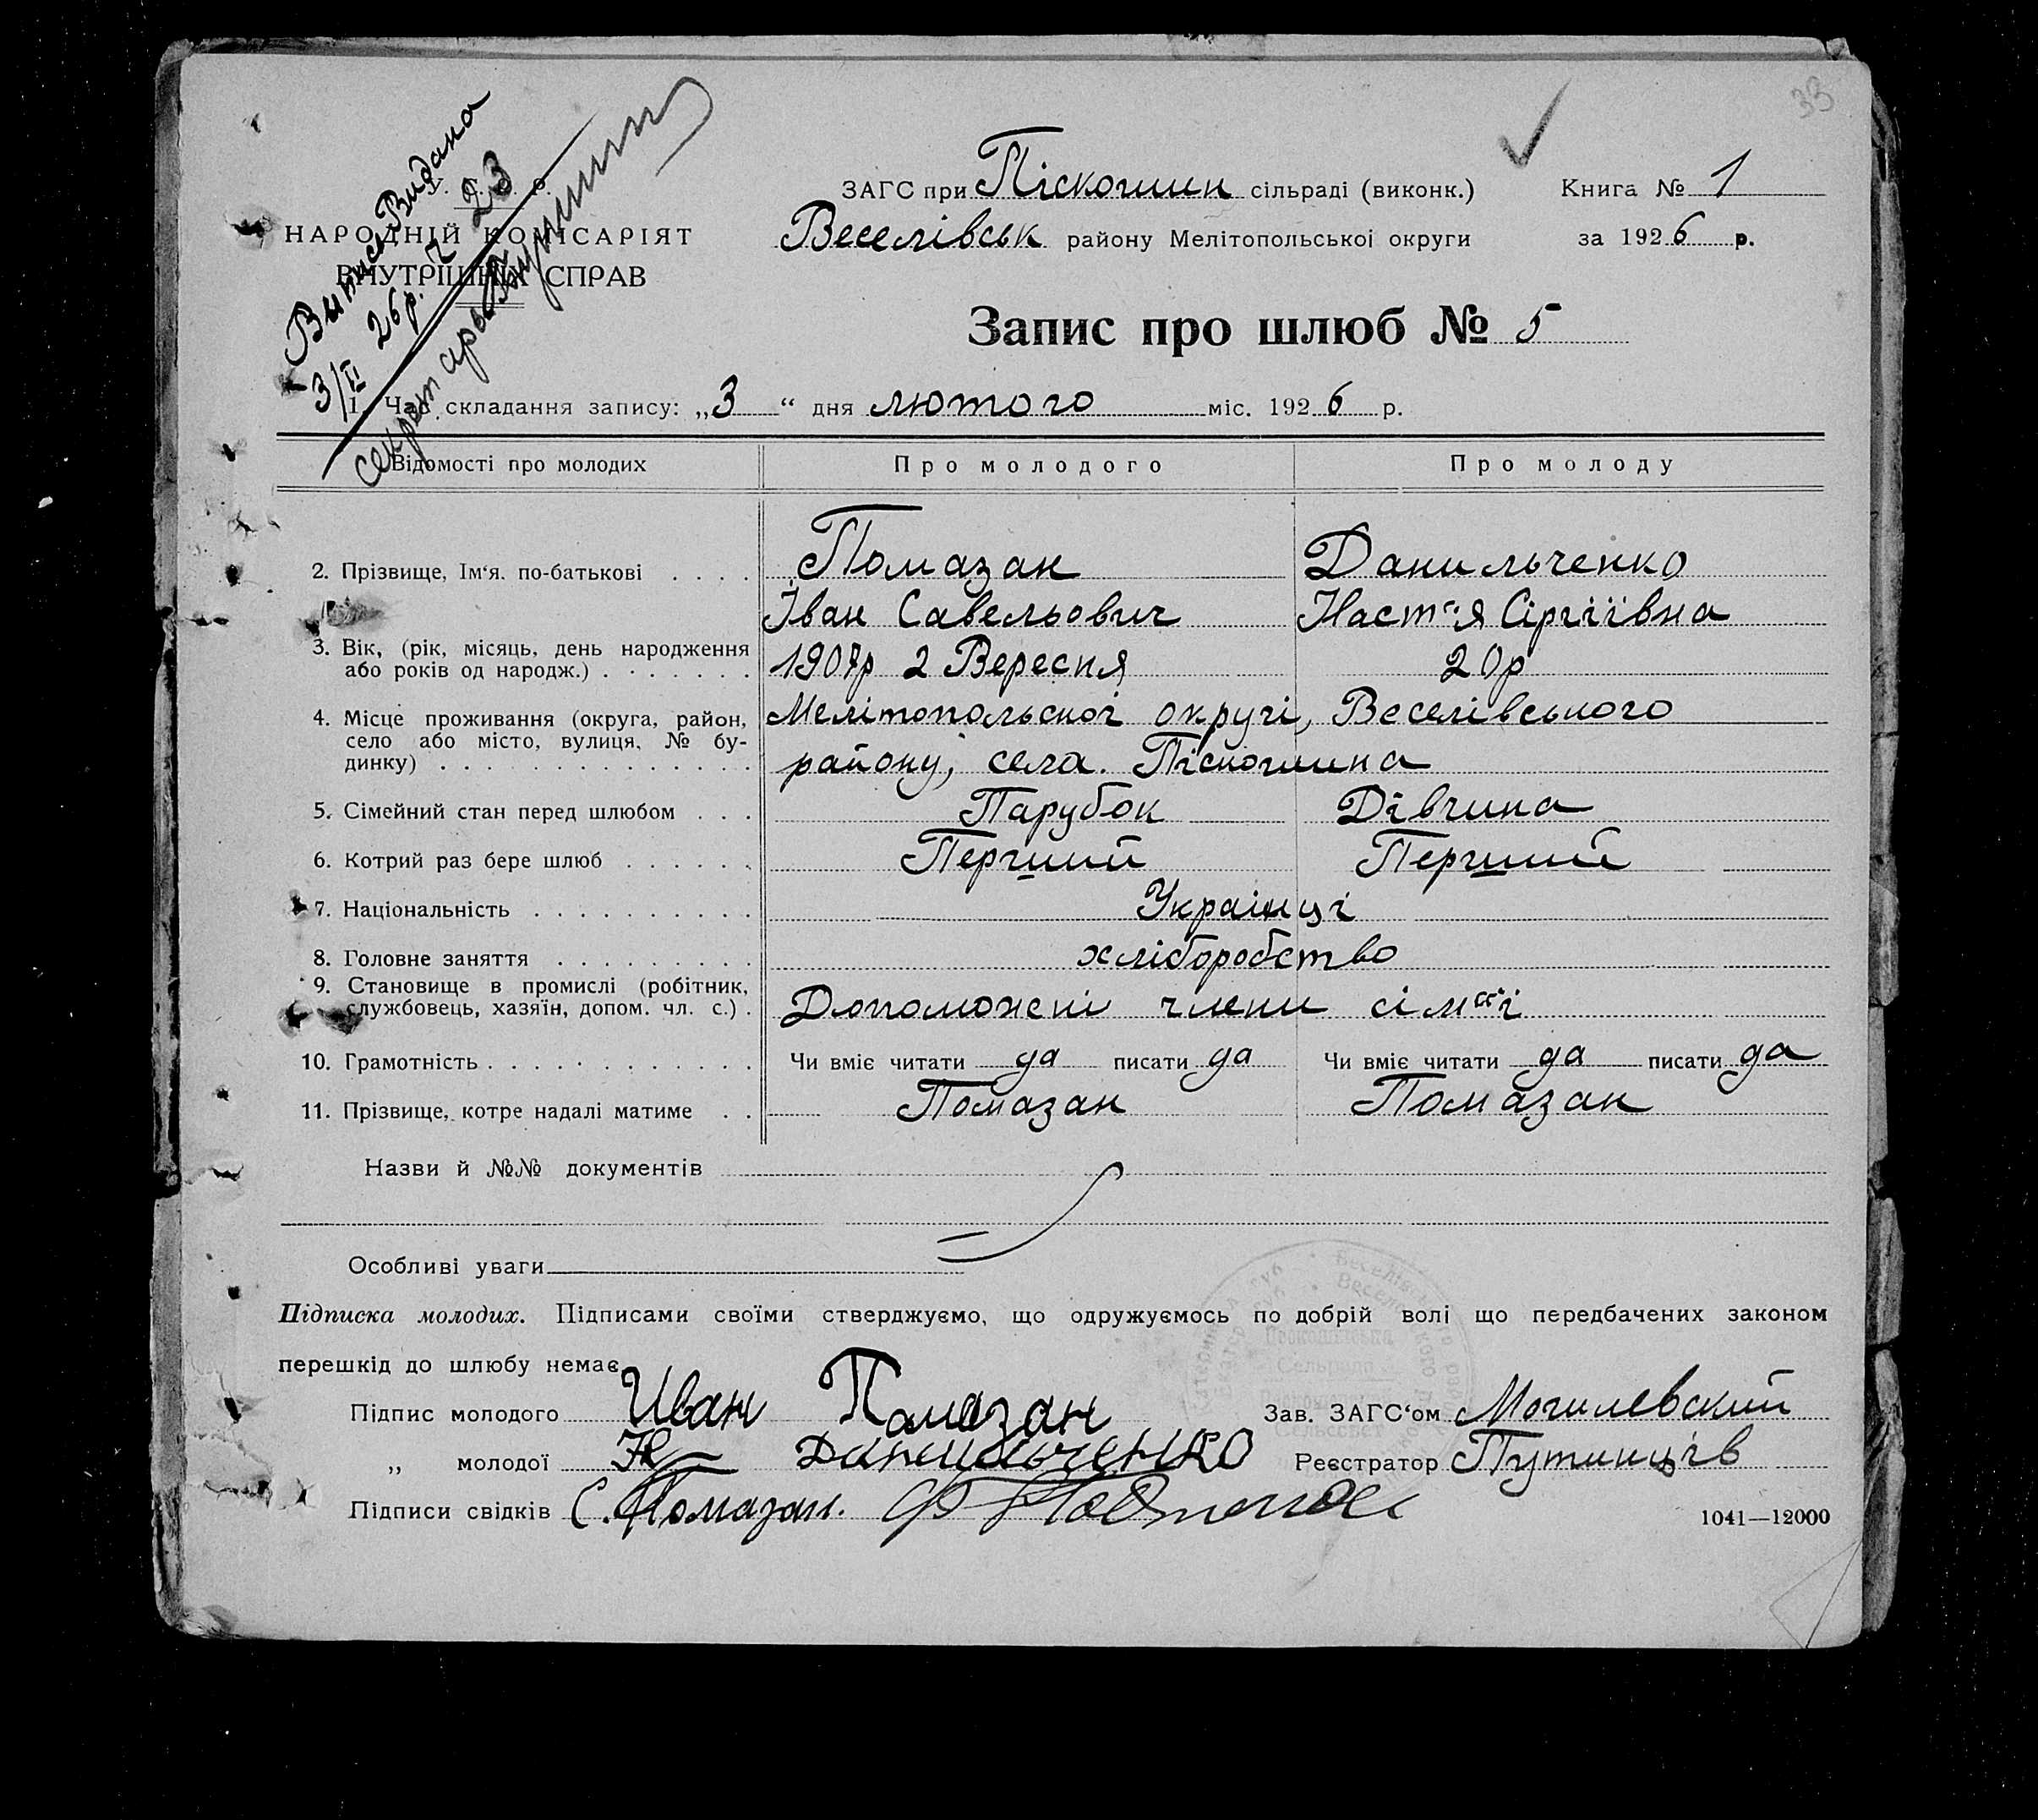 33
Выпись Видана
3/II 26р. Ч 23
секретарь
У. С. Р. Р.
НАРОДНІЙ КОМІСАРІЯТ
ВНУТРІШНІХ СПРАВ
ЗАГС при Піскошин сільраді (виконк.)
Книга № 1
Веселівськ району Мелітопольської округи
за 1926 р.
Запис про шлюб № 5
1. Час складання запису: „3“ дня лютого міс. 1926 р.
Відомості про молодих Про молодого Про молоду
2. Прізвище, Ім‘я. по-батькові . . . . Помазан Данильченко
Іван Савельович Наст“я Сіргіївна
3. Вік, (рік, місяць, день народження
або років од народж.) . . . . . . . 1907р 2 Вересня 20р
4. Місце проживання (округа, район, Мелітопольскої округі, Веселівського
село або місто, вулиця, № бу-
динку) . . . . . . . . . . . . . . району, села. Піскошина
5. Сімейний стан перед шлюбом . . . Парубок Дівчина
6. Котрий раз бере шлюб . . . . . . Перший Перший
7. Національність . . . . . . . . . . Українці
8. Головне заняття . . . . . . . . . хліборобство
9. Становище в промислі (робітник,
службовець, хазяїн, допом. чл. с.) . Допоможені члени сім“ї
10. Грамотність . . . . . . . . . . . . Чи вміє читати да писати да Чи вміє читати да писати да
11. Прізвище, котре надалі матиме . . Помазан Помазан
Назви й №№ документів
Особливі уваги
Підписка молодих. Підписами своїми стверджуємо, що одружуємось по добрій волі що передбачених законом
перешкід до шлюбу немає.
Підпис молодого Иван Памазан Зав. ЗАГС‘ом Могилевский
„ молодої Н Данильченко Реєстратор Путинців
Підписи свідків С. Помазан.
1041—12000